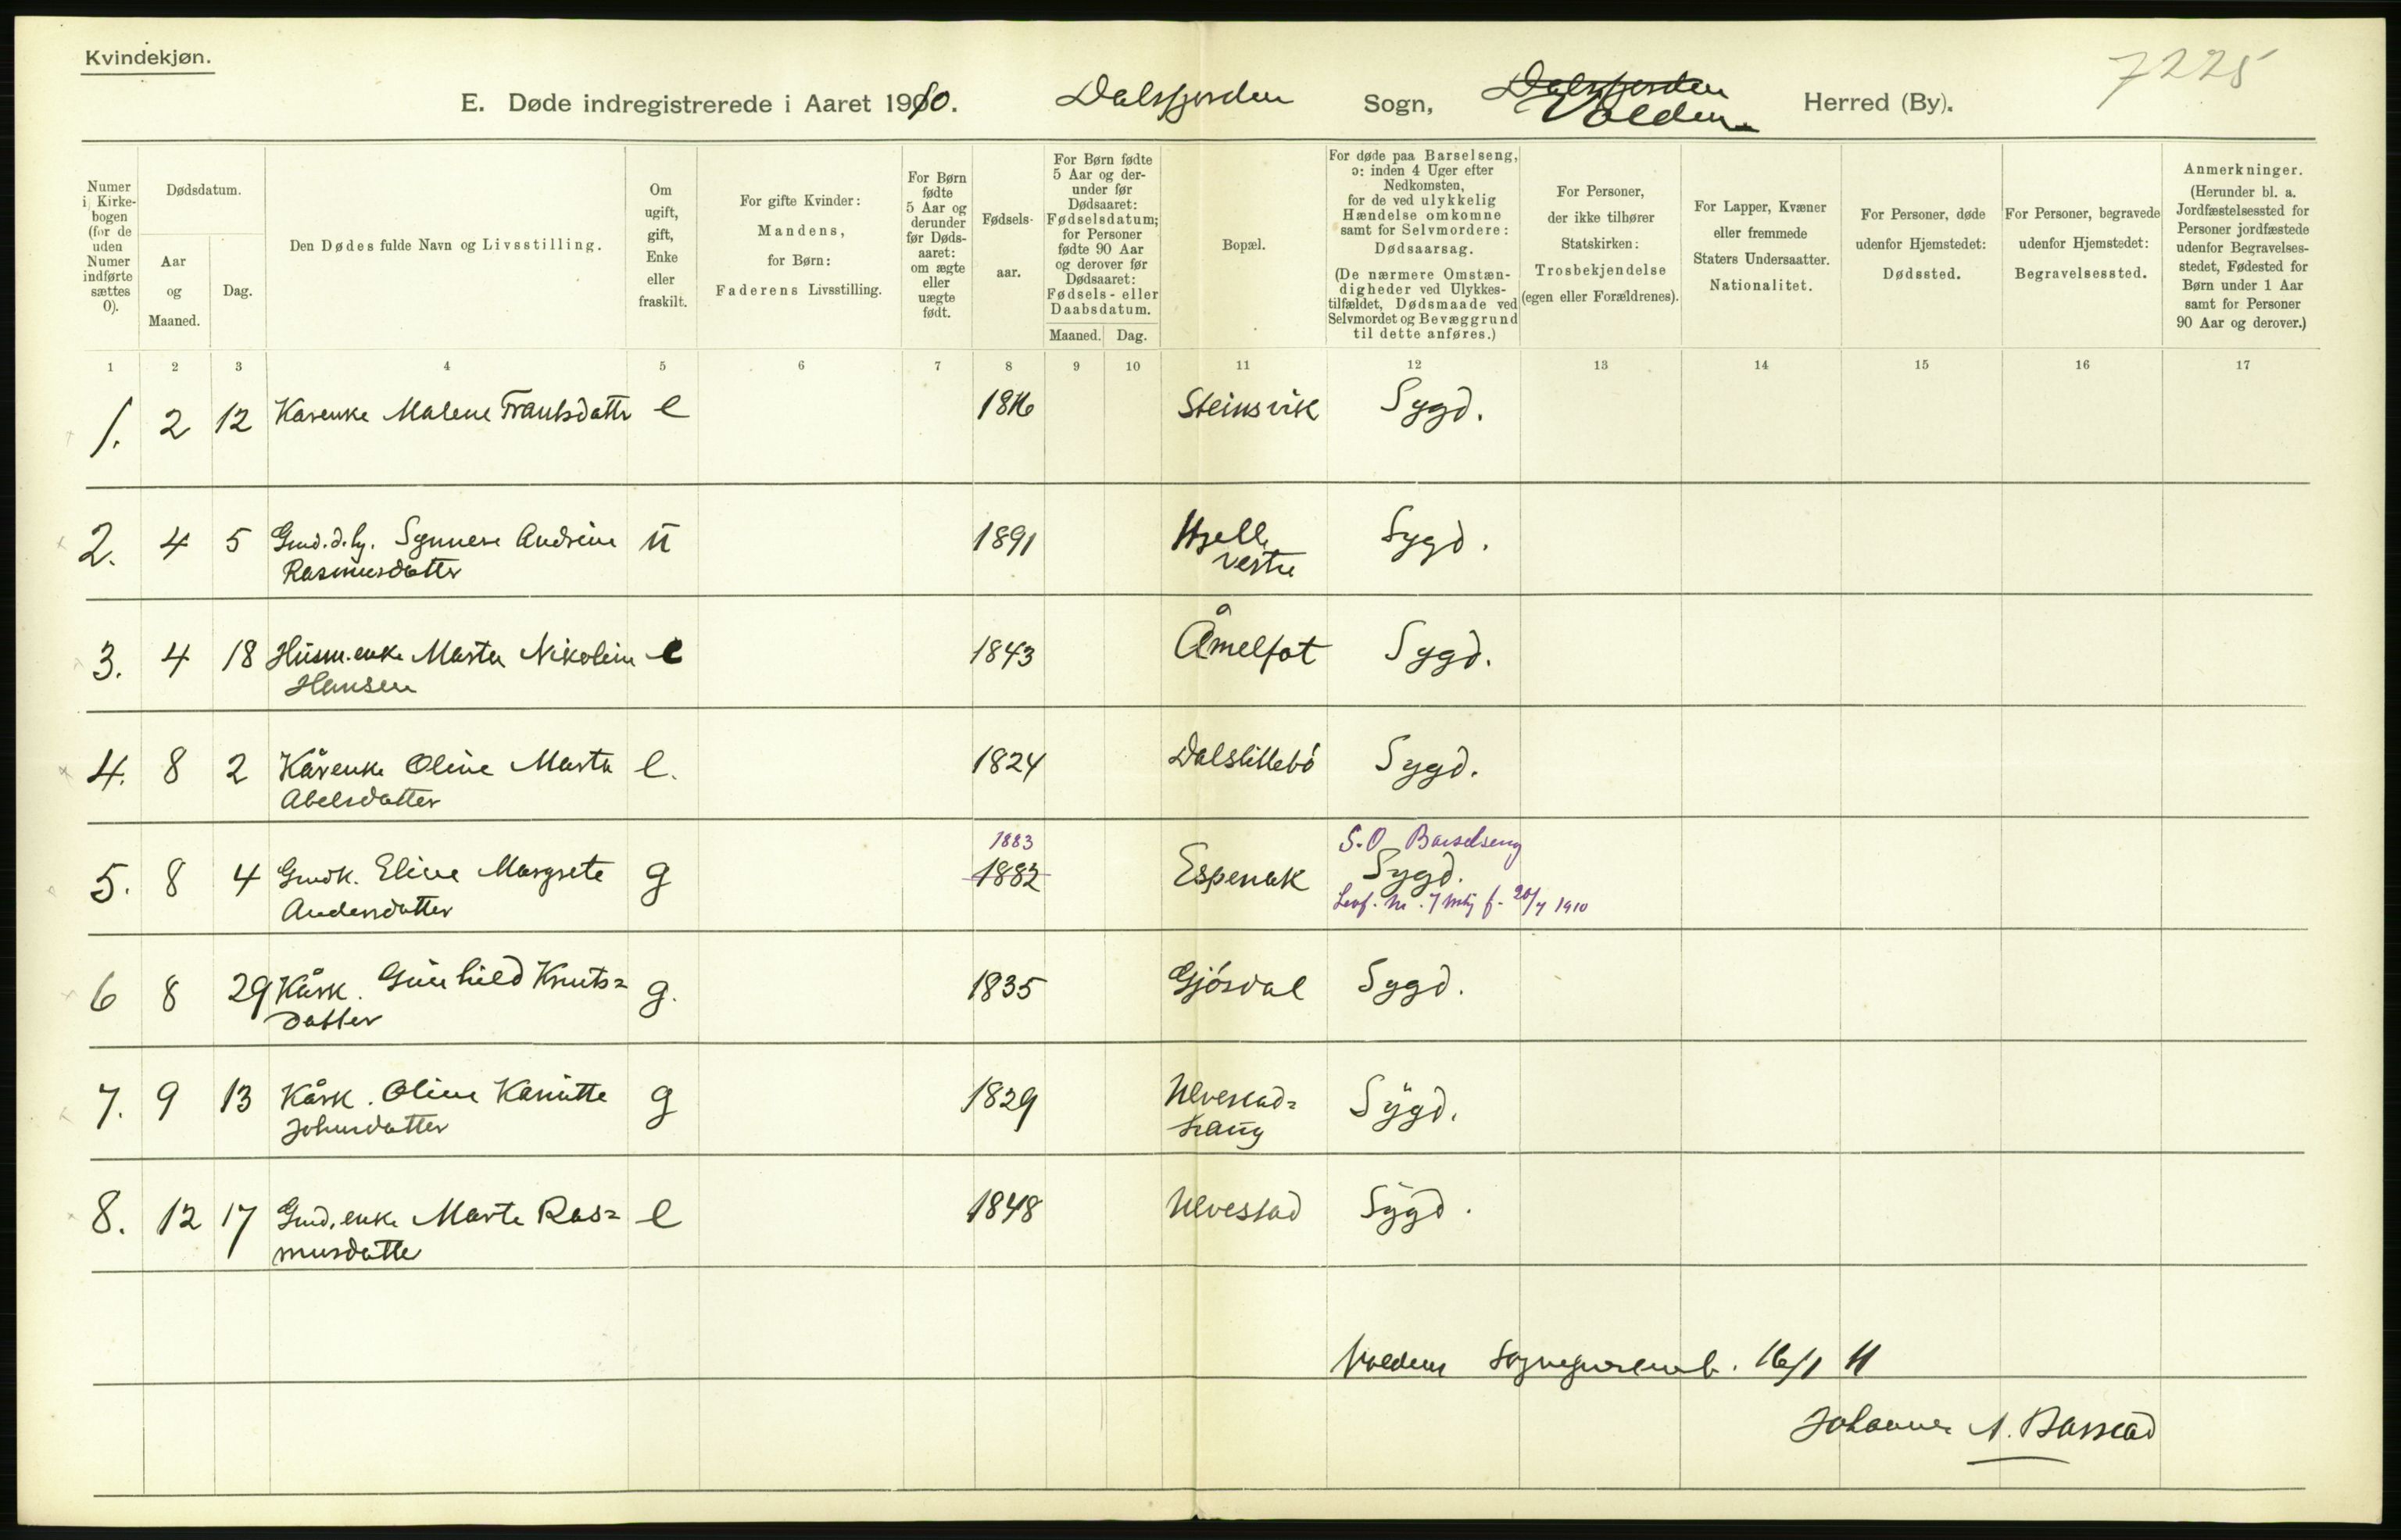 Kvindekjøn.
7225
E. Døde indregistrerede i Aaret 1910. Dalsfjorden Sogn, Dalsfjorden Volden Herred (By).
Numer i Kirkebogen (for de uden Numer indførte sættes 0).
Dødsdatum.
Aar og Maaned.
Dag.
Den Dødes fulde Navn og Livsstilling.
Om ugift, gift, Enke eller fraskilt.
For gifte Kvinder: Mandens, for Børn: Faderens Livsstilling.
For Børn fødte 5 Aar og derunder før Dødsaaret: om ægte eller uægte født.
Fødselsaar.
For Børn fødte 5 Aar og derunder før Dødsaaret: Fødselsdatum; for Personer fødte 90 Aar og derover før Dødsaaret: Fødsels- eller Daabsdatum.
Maaned. Dag.
Bopæl.
For døde paa Barselseng, ɔ: inden 4 Uger efter Nedkomsten, for de ved ulykkelig Hændelse omkomne samt for Selvmordere: Dødsaarsag.
(De nærmere Omstændigheder ved Ulykkestilfældet, Dødsmaade ved Selvmordet og Bevæggrund til dette anføres.)
For Personer, der ikke tilhører Statskirken: Trosbekjendelse (egen eller Forældrenes).
For Lapper, Kvæner eller fremmede Staters Undersaatter. Nationalitet.
For Personer, døde udenfor Hjemstedet: Dødssted.
For Personer, begravede udenfor Hjemstedet: Begravelsessted.
Anmerkninger.
(Herunder bl. a. Jordfæstelsessted for Personer jordfæstede udenfor Begravelsesstedet, Fødested for Børn under 1 Aar samt for Personer 90 Aar og derover.)
1 2 3 4 5 6 7 8 9 10 11 12 13 14 15 16 17
1. 2 12 Karenke Malene Frantsdatter e 1816 Steinsvik Sygd.
2. 4 5 Gmd.d.ly. Synnere Andrine u 1891 Hjelle vestre Sygd.
Rasmusdatter
3. 4 18 Husm.enke Marta Nikoline e 1843 Åmelfot Sygd.
Hansen
4. 8 2 Kårenke Oline Marta e. 1824 Dalslittebö Sygd.
Abelsdatter
1883 S.O Barselseng
5. 8 4 Gmdk. Eline Margrete g 1882 Espenak Sygd.
Andersdatter Levf. Nr. 7 f. 20/7 1910
6 8 29 Kårk. Gunhild Knuts= g. 1835 Gjösdal Sygd.
datter
7. 9 13 Kårk. Oline Kanutte g 1829 Ulvestad= Sygd.
Johnsdatter haug
8. 12 17 Gmd.enke Marte Ras= e 1848 Ulvestad Sygd.
musdatter
Voldens Sogneprestemb. 16/1 11
Johannes N. Barstad